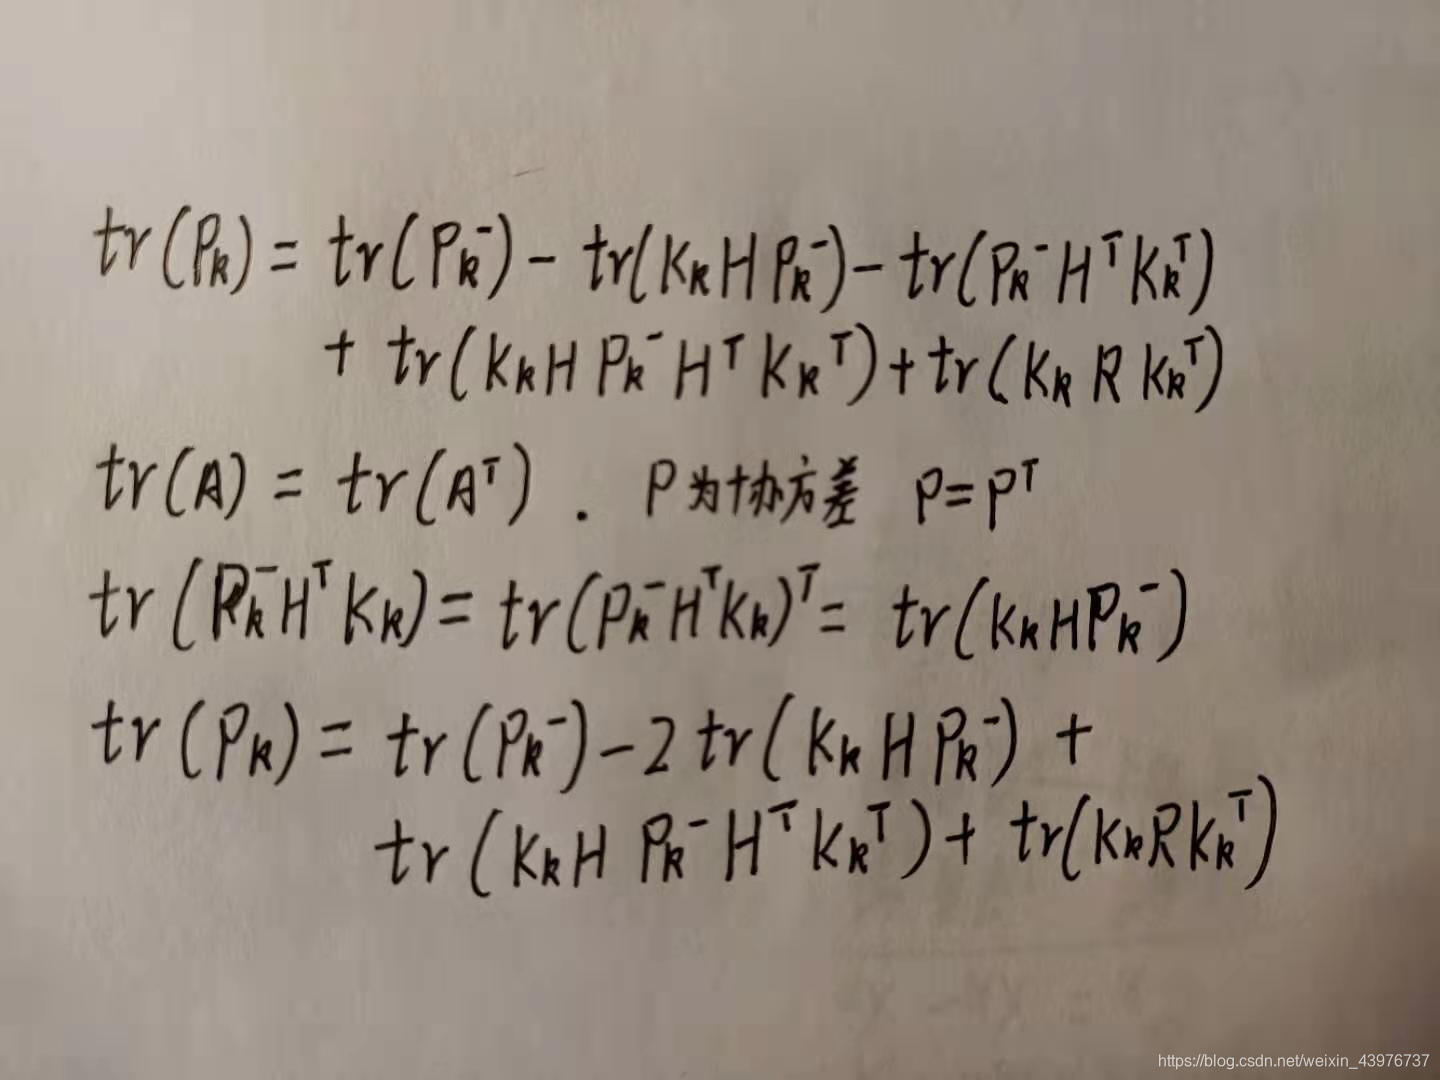 tr(Pₖ) = tr(Pₖ⁻) - tr(KₖHPₖ⁻) - tr(Pₖ⁻HᵀKₖᵀ)
+ tr(KₖHPₖ⁻HᵀKₖᵀ) + tr(KₖRKₖᵀ)
tr(A) = tr(Aᵀ) . P为协方差 P=Pᵀ
tr(Pₖ⁻HᵀKₖ) = tr(Pₖ⁻HᵀKₖ)ᵀ = tr(KₖHPₖ⁻)
tr(Pₖ) = tr(Pₖ⁻) - 2tr(KₖHPₖ⁻) +
tr(KₖHPₖ⁻HᵀKₖᵀ) + tr(KₖRKₖᵀ)
https://blog.csdn.net/weixin_43976737